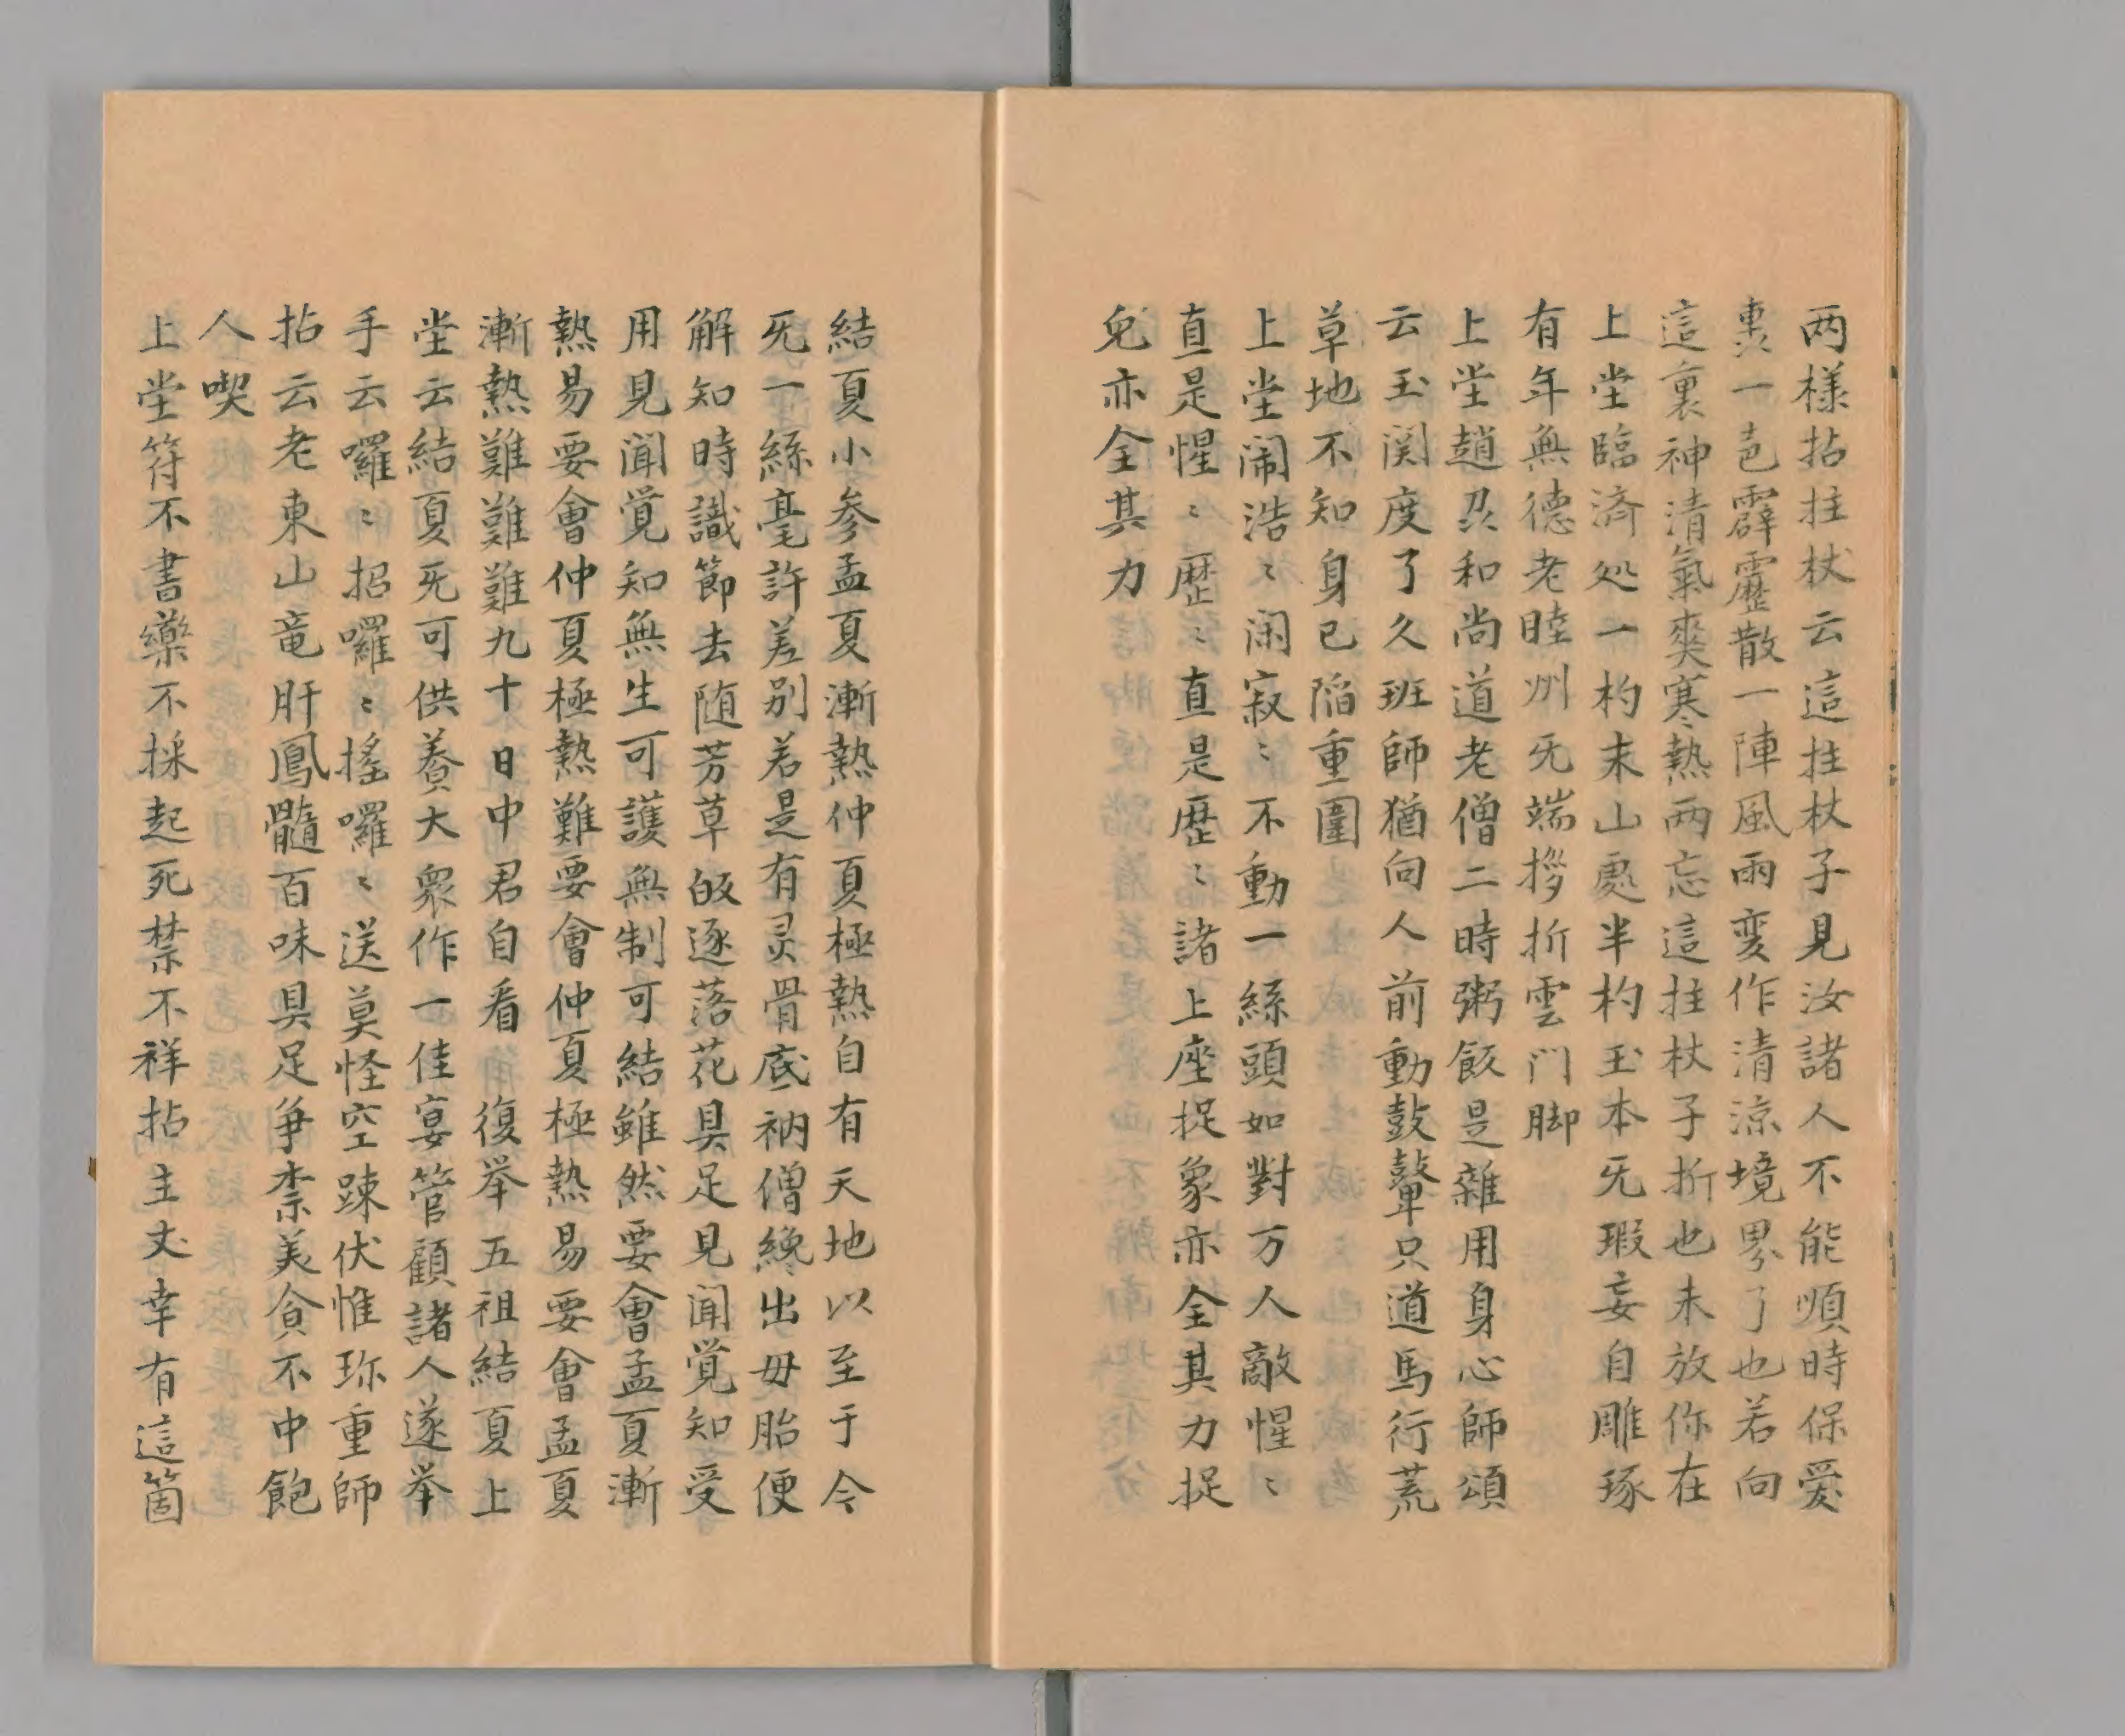 两様拈拄杖云這拄杖子見汝諸人不能順時保愛
裏一邑霹靂散一陣風雨変作清涼境界了也若向
這裏神清氣爽寒熱两忘這拄杖子折也未放你在
上堂臨済処一杓末山處半杓玉本旡瑕妄自雕琢
有年無德老睦州旡端拶折雲门脚
上堂趙州和尚道老僧二時粥飯是雜用身心師頌
云玉関度了久班師猶向人前動鼓鼙只道馬行荒
草地不知身已陷重圍
上堂闹浩〻闲寂〻不動一絲頭如對万人敵惺〻
直是惺〻歴〻直是歴〻諸上座捉象亦全其力捉
兔亦全其力
結夏小参孟夏漸熱仲夏極熱自有天地以至于今
旡一絲毫許差别若是有灵骨底衲僧纔出母胎便
解知時識節去随芳草故逐落花具足見闻覚知受
用見闻覚知無生可護無制可結雖然要會孟夏漸
熱易要會仲夏極熱難要會仲夏極熱易要會孟夏
漸熱難難難九十日中君自看　復举五祖結夏上
堂云結夏旡可供養大衆作一佳宴管顧諸人遂举
手云囉〻招囉〻搖囉〻送莫怪空踈伏惟珎重師
拈云老東山竜肝鳳髓百味具足争柰美食不中飽
人喫
上堂符不書藥不採起死禁不祥拈主丈幸有這箇